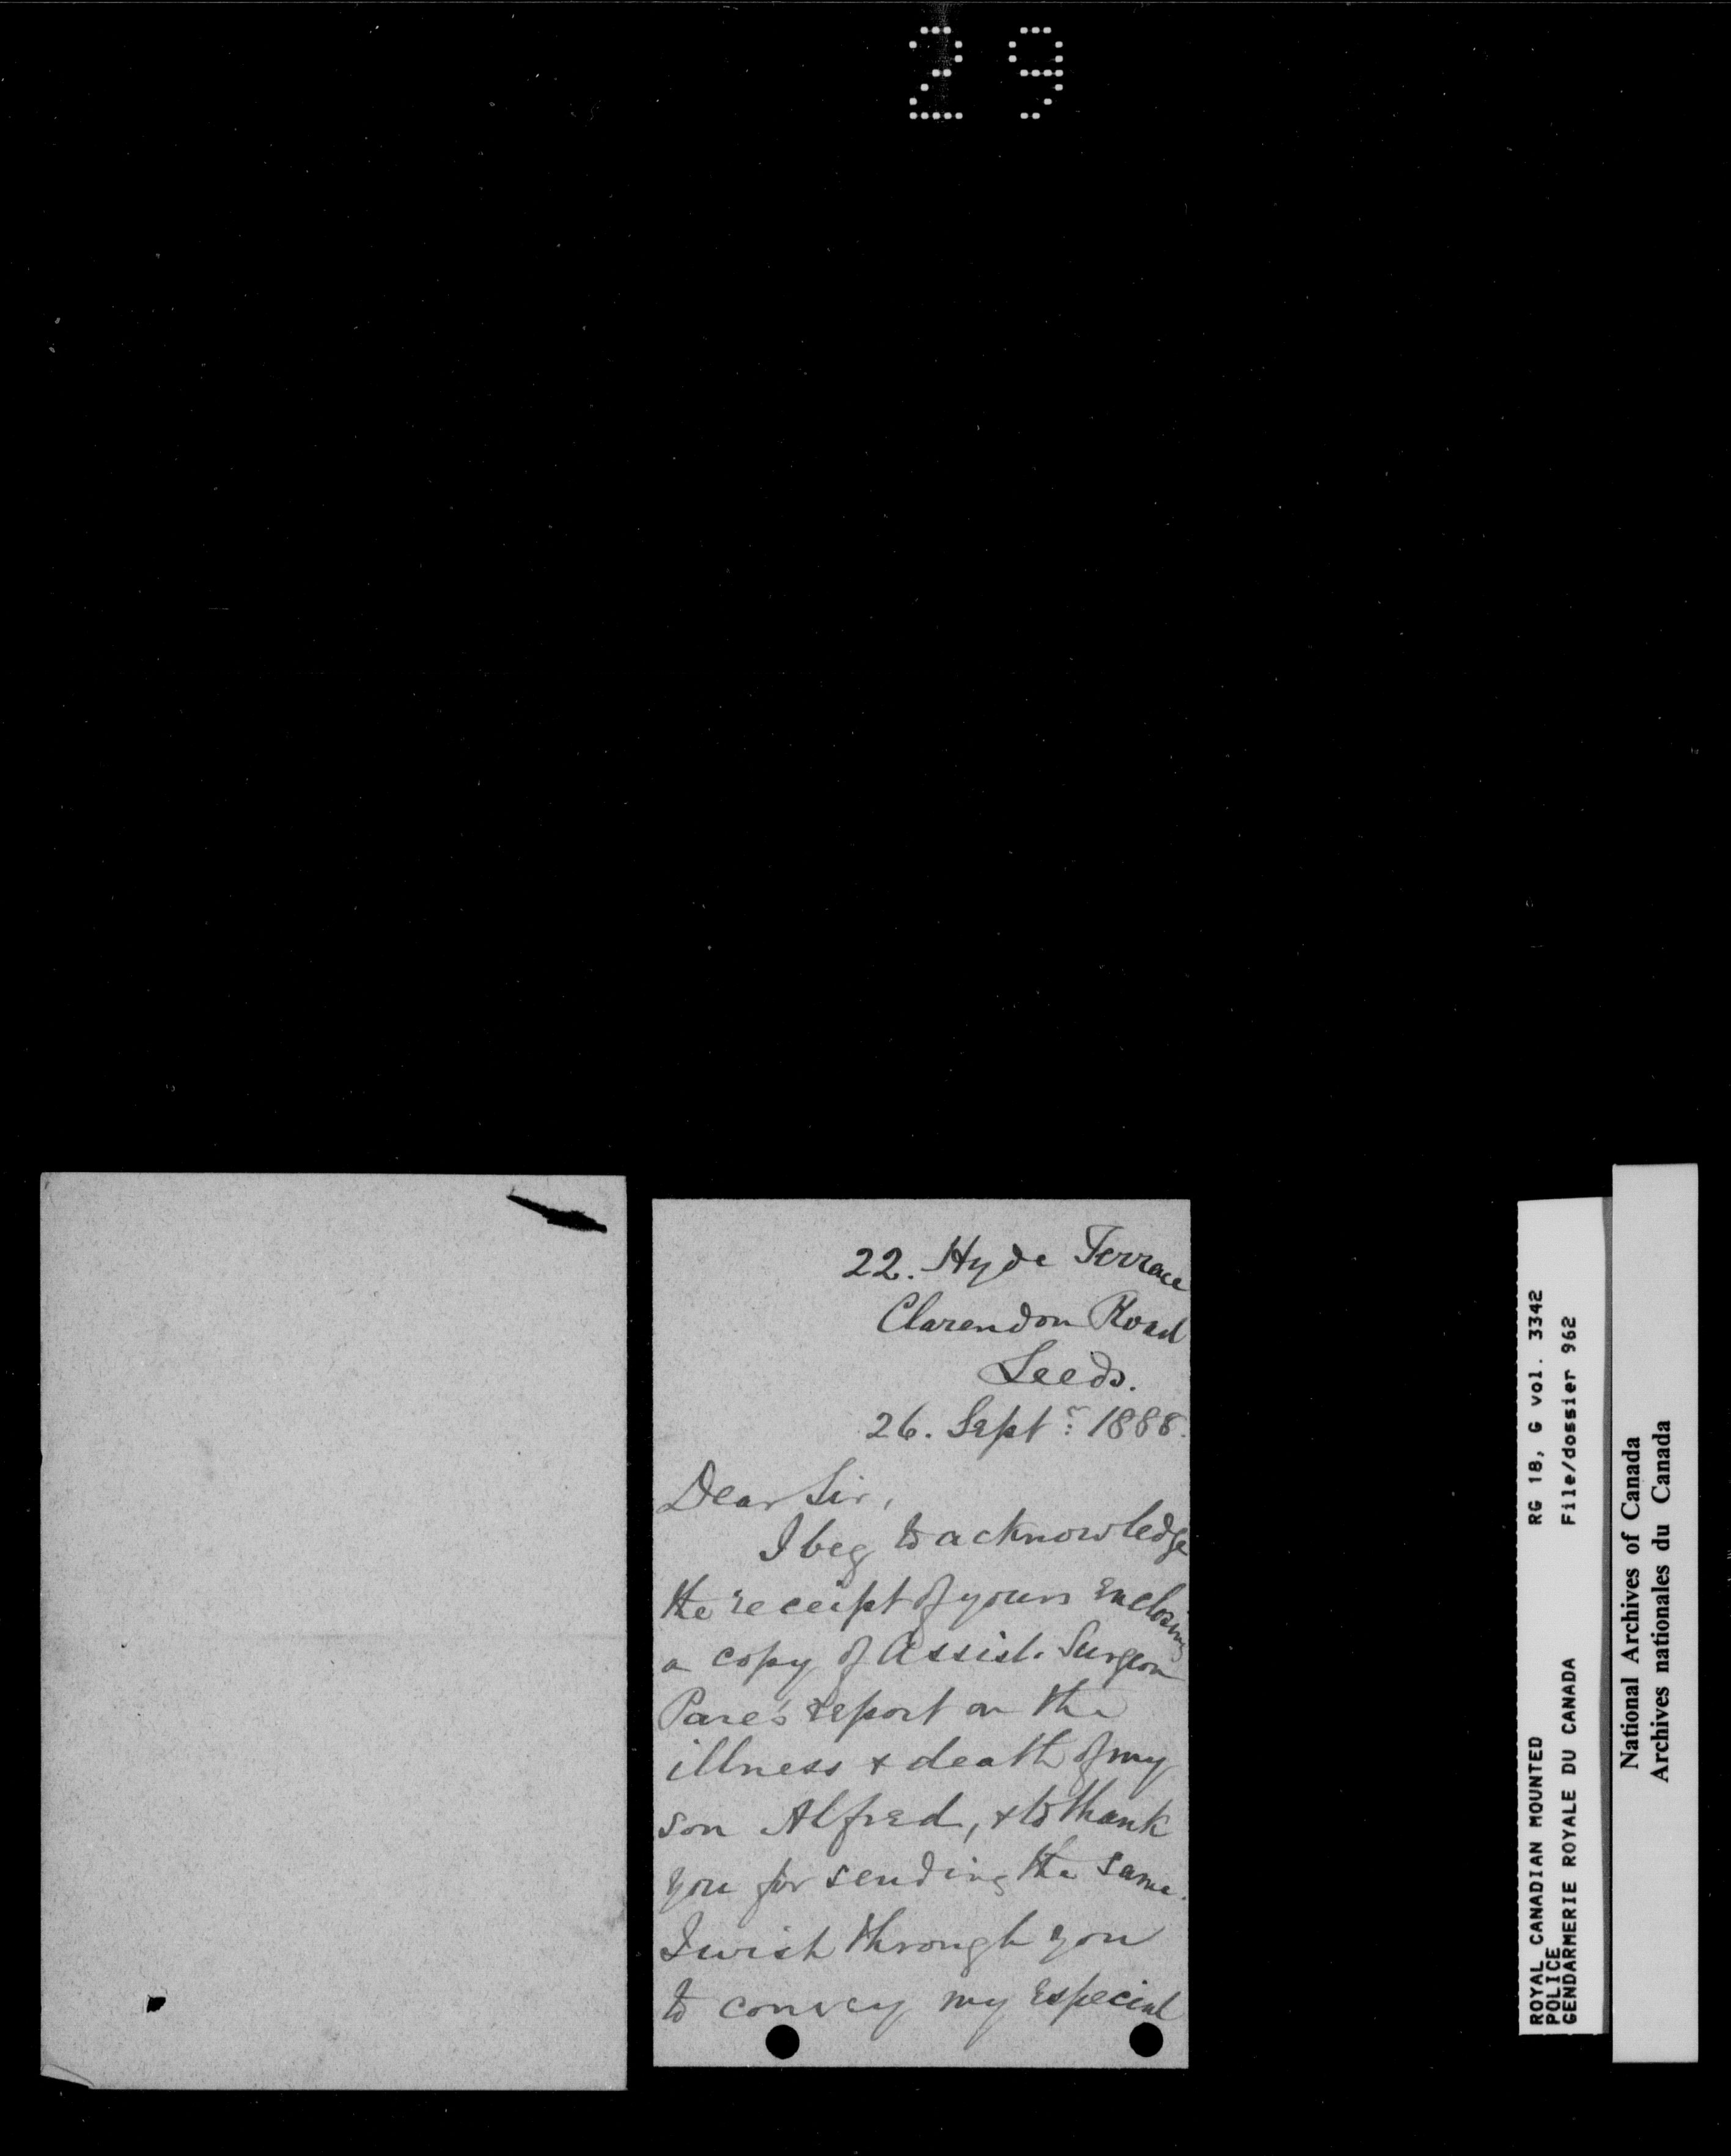 29
22. Hyde Terrace
Clarendon Road
Leeds.
26. Septr: 1888.
Dear Sir,
I beg to acknowledge
the receipt of yours enclosing
a copy of Assist. Surgeon
Pare's report on the
illness & death of my
son Alfred, & to thank
you for sending the same.
I wish through you
to convey my especial
ROYAL CANADIAN MOUNTED
POLICE
GENDARMERIE ROYALE DU CANADA
RG 18, G vol. 3342
File/dossier 962
National Archives of Canada
Archives nationales du Canada